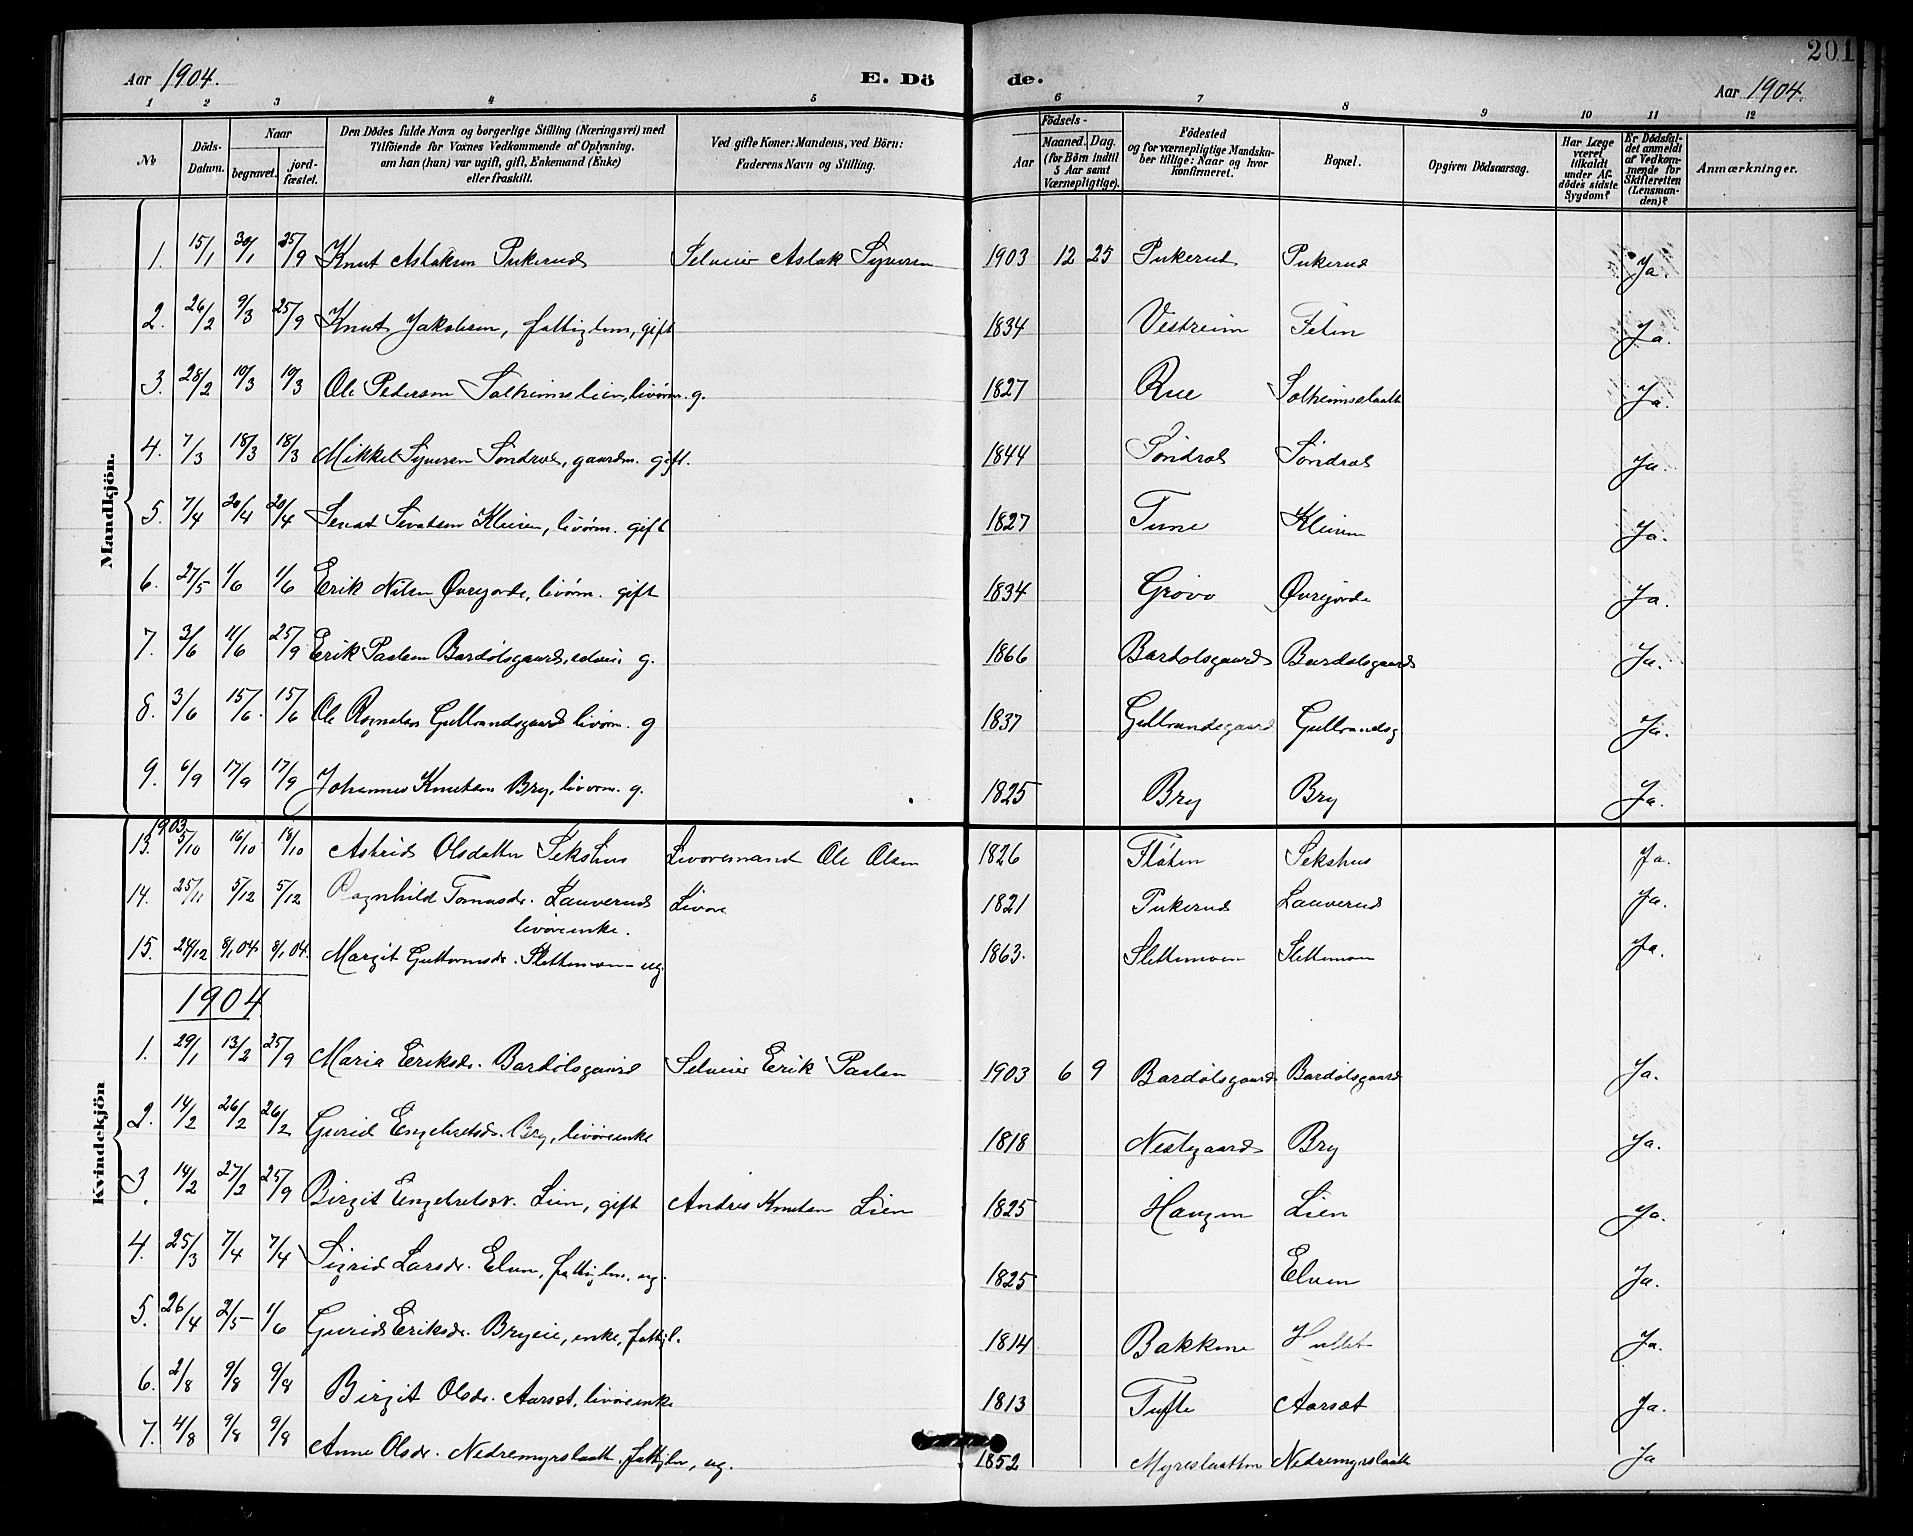 201
Aar 1904. E. Dö de. Aar 1904.
1 2 3 4 5 6 7 8 9 10 11 12
No Döds-Datum. Naar begravet. jord-fæstet. Den Dödes fulde Navn og borgerlige Stilling (Næringsvei) med Tilföiende for Voxnes Vedkommende af Oplysning, om han (hun) var ugift, gift, Enkemand (Enke) eller fraskilt. Ved gifte Koner: Mandens, ved Börn: Faderens Navn og Stilling. Födsels- Aar Maaned. Dag. (for Börn indtil 5 Aar samt Værnepligtige). Födested og for værnepligtige Mandskaber tillige: Naar og hvor konfirmeret. Bopæl. Opgiven Dödsaarsag. Har Læge været tilkaldt under Afdödes sidste Sygdom? Er Dödsfaldet anmeldt af Vedkommende for Skifteretten (Lensmanden)? Anmærkninger.
Mandkjön.
1. 15/1 30/1 25/9 Knut Aslaksen Pukerud Selveier Aslak Syversen 1903 12 25 Pukerud Pukerud Ja.
2. 26/2 9/3 25/9 Knut Jakobsen, fattiglem, gift 1834 Vestreim Feten Ja.
3. 28/2 19/3 19/3 Ole Pedersen Solheimslien, livörm. g. 1827 Rue Solheimsslaatt Ja.
4. 7/3 18/3 18/3 Mikkel Syversen Söndrol, gaardm. gift. 1844 Söndrol Söndrol Ja
5. 7/4 20/4 20/4 Sevat Sevatsen Kleiven, livörm. gift 1827 Tune Kleiven Ja.
6. 27/5 1/6 1/6 Erik Nilsen Øvrejorde, livörm. gift 1834 Grovo Øvrejorde Ja.
7. 3/6 11/6 25/9 Erik Paalsen Bardölsgaard, selvei. g. 1866 Bardolsgaard Bardolsgaard Ja.
8. 3/6 15/6. 15/6 Ole Gulbrandsgaard livörm. g 1837 Gulbrandsgaard Gulbrandsg Ja.
9. 6/9 17/9 17/9 Johannes Knutsen Bry, livörm. g. 1825 Bry Bry Ja.
Kvindekjön
1903
13. 5/10 16/10 18/10 Astrid Olsdatter Sekshus Livöresmand Ole Olsen 1826 Flöten Sekshus Ja.
14. 25/11 5/12 5/12 Ragnhild Tomasdr. Lauverud Livöre 1821 Pukerud Lauverud Ja.
livöreenke.
15. 24/12 8/1 04. 8/1 04. Margit Guttormsdr. Slettemoen ug. 1863. Slettemoen Slettemoen Ja.
1904
1. 29/1 13/2 25/9 Maria Eriksdr. Bardölsgaard Selveier Erik Paalsen 1903 6 9 Bardölsgaard Bardölsgaard Ja.
2. 14/2 26/2 26/2 Gurid Engebretsdr. Bry, livöreenke 1818 Nestegaard Bry Ja.
3. 14/2 27/2 25/9 Birgit Engebretsdr. Lien, gift Andres Knutsen Lien 1825 Haugen Lien Ja.
4. 25/3 7/4 7/4 Sigrid Larsdr. Elven, fattiglem. ug. 1825 Elven Ja.
5. 26/4 2/5 1/6 Gurid Eriksdr. Bryeie, enke, fattigl. 1814 Bakkene Ja.
6. 2/8 9/8 9/8 Birgit Olsdr. Aarset, livöreenke 1813 Tufte Aarset Ja.
7. 4/8 9/8 9/8 Anne Olsdr. Nedremyrslaatt. fattiglem, ug. 1852 Myreslaatten Nedremyrslaatt Ja